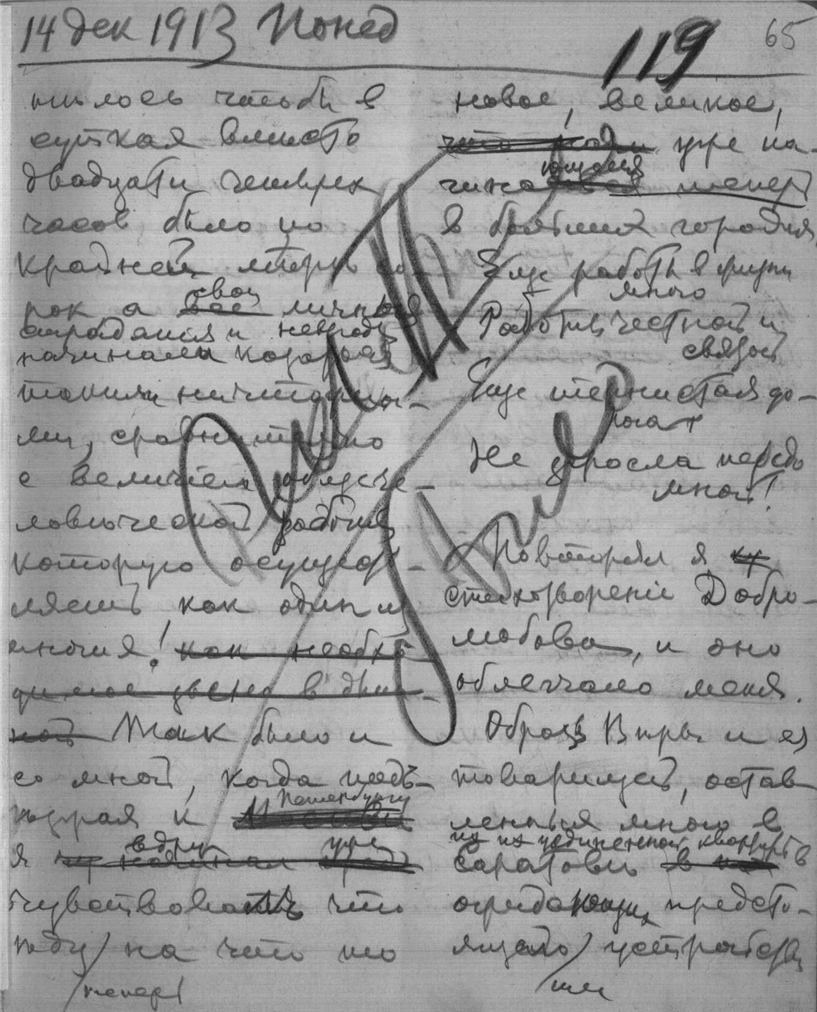 14 дек 1913 Понед
119
65
нилось чтобы в
сутках вместо
двадцати четырех
часов было по
крайней мере со-
рок а все свои личныя
страдания и невзгоды
начинала
такими ничтожны-
ми, сравнительно
с величіем
ловѣческой работы
которую осущест-
вляешь как один из
многих! как необхо-
димое звено в
ной Так было и
со мной, когда подъ-
ѣзжая к Петербургу
я вдруг уже
чувствовать что
ѣду/на что то
/теперь
новое, великое,
что уже на-
чинающееся теперь
в больших городах
Еще работы в жизни
много
Работы честной и
святой
Еще тернистая до-
рога
Не заросла передо
мной!
Повторял я
стихотвореніе Добро-
любова, и оно
облегчало меня.
Образ Вѣры и ея
товарищей, остав-
ленных мною в
Саратовѣ в их уединенной квартирѣ в
ожидающих предсто-
ящаго/устройства
/им